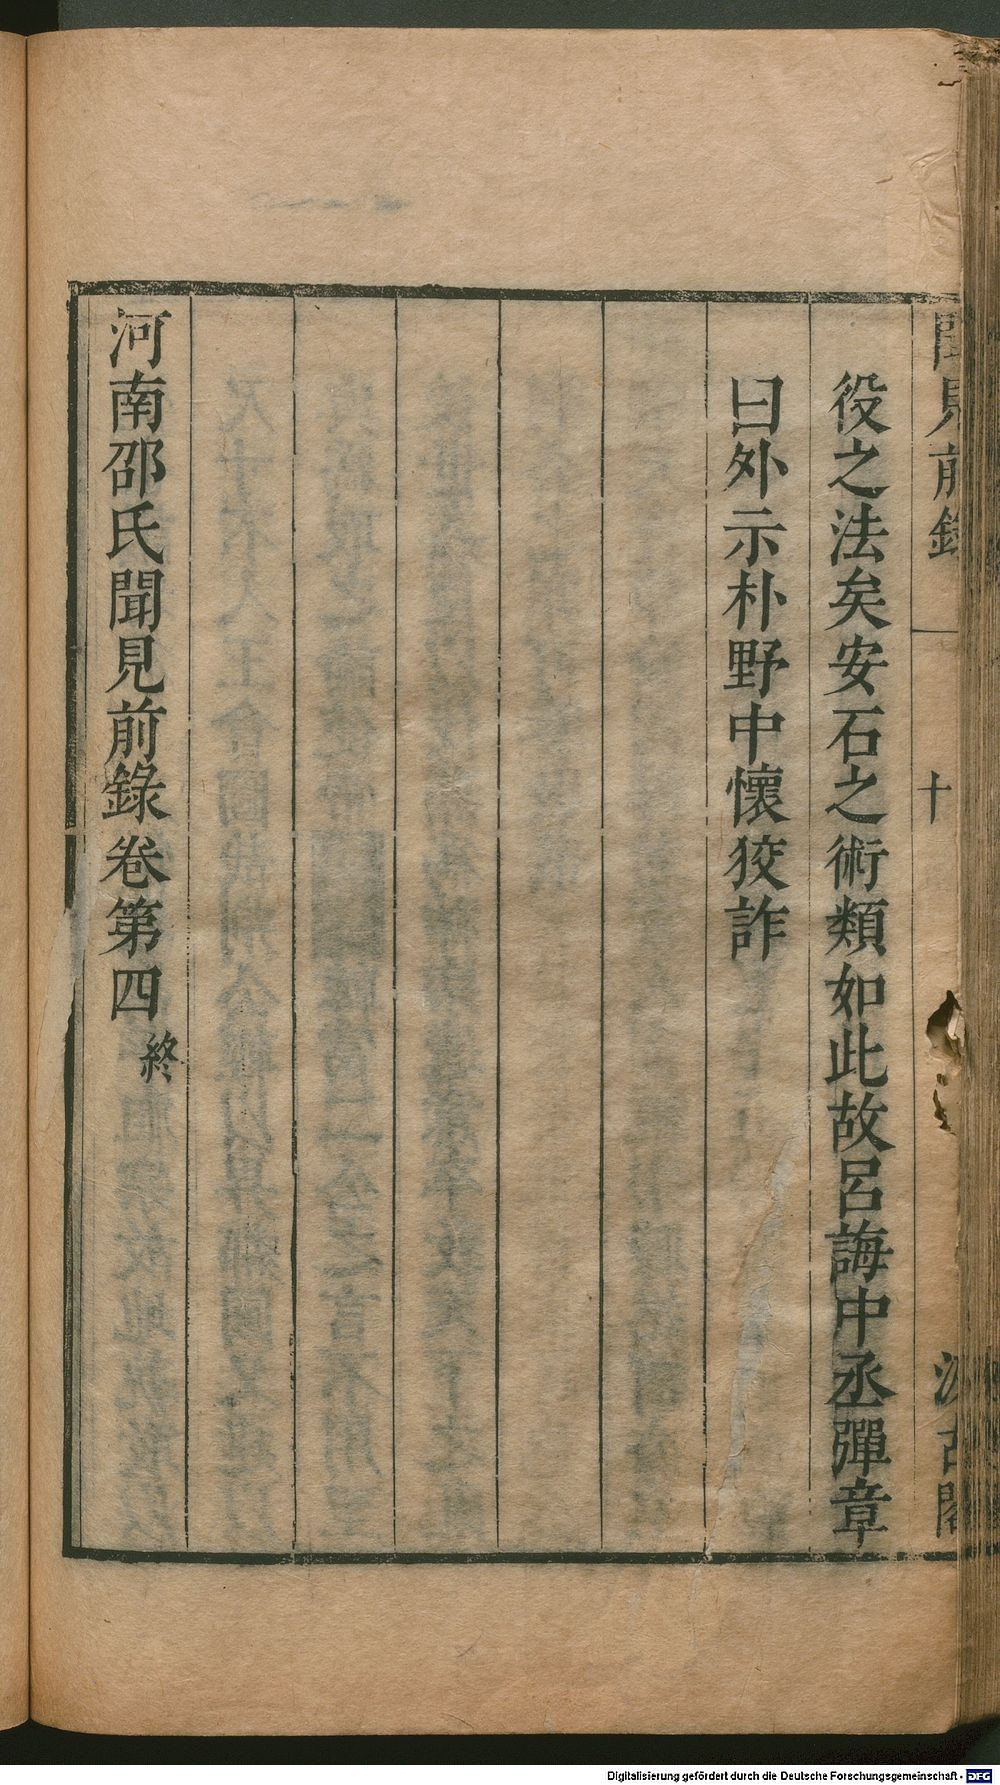 聞見前錄
十
汲古閣
役之法矣安石之術類如此故呂誨中丞彈章
曰外示朴野中懷狡詐
河南邵氏聞見前錄卷第四終
Digitalisierung gefördert durch die Deutsche Forschungsgemeinschaft - DFG